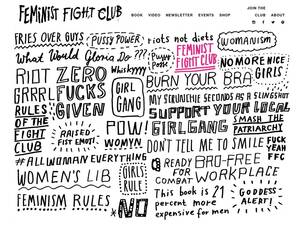 FEMINIST FIGHT CLUB
BOOK VIDEO NEWSLETTER EVENTS SHOP JOIN THE CLUB ABOUT
FRIES OVER GUYS
PUSSY POWER
riots not diets
WOMANISM
What Would Gloria Do ???
Whiskyyyy
Pussy Posse
FEMINIST FIGHT CLUB
NO MORE NICE GIRLS
RIOT GRRRL
ZERO FUCKS GIVEN
GIRL GANG
BURN YOUR BRA
MY SCRUNCHIE SECONDS AS A SLINGSHOT
RULES OF THE FIGHT CLUB
RAISED FIST EMOJI
POW!
WOMYN
SUPPORT YOUR LOCAL GIRL GANG
SMASH THE PATRIARCHY
#ALLWOMANEVERYTHING
DON'T TELL ME TO SMILE
FUCK YEAH FFC
WOMEN'S LIB
GIRLS RULE
READY FOR COMBAT
BRO-FREE WORKPLACE
FEMINISM RULES
*NO
This book is 21 percent more expensive for men
GODDESS ALERT!